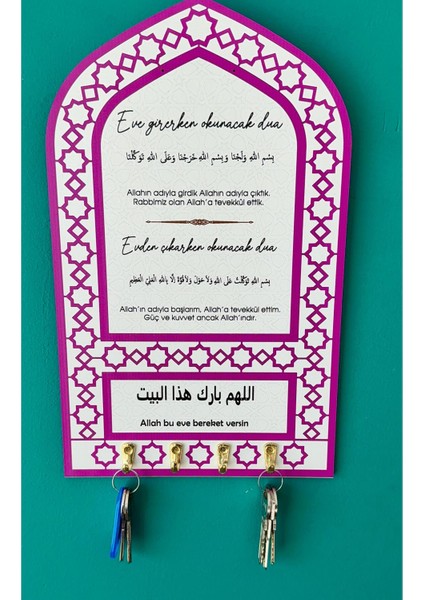 Eve girerken okunacak dua
بِسْمِ اللَّهِ وَلَجْنَا وَ بِسْمِ اللَّهِ خَرَجْنَا وَعَلَى اللَّهِ تَوَكَّلْنَا
Allahın adıyla girdik Allahın adıyla çıktık.
Rabbimiz olan Allah'a tevekkül ettik.
Evden çıkarken okunacak dua
بِسْمِ اللَّهِ تَوَكَّلْتُ عَلَى اللَّهِ وَلَاحَوْلَ وَلَاقُوَّةَ اِلَّا بِاللَّهِ الْعَلِيِّ الْعَظِيمِ
Allah'ın adıyla başlarım, Allah'a tevekkül ettim.
Güç ve kuvvet ancak Allah'ındır.
اللهم بارك هذا البيت
Allah bu eve bereket versin